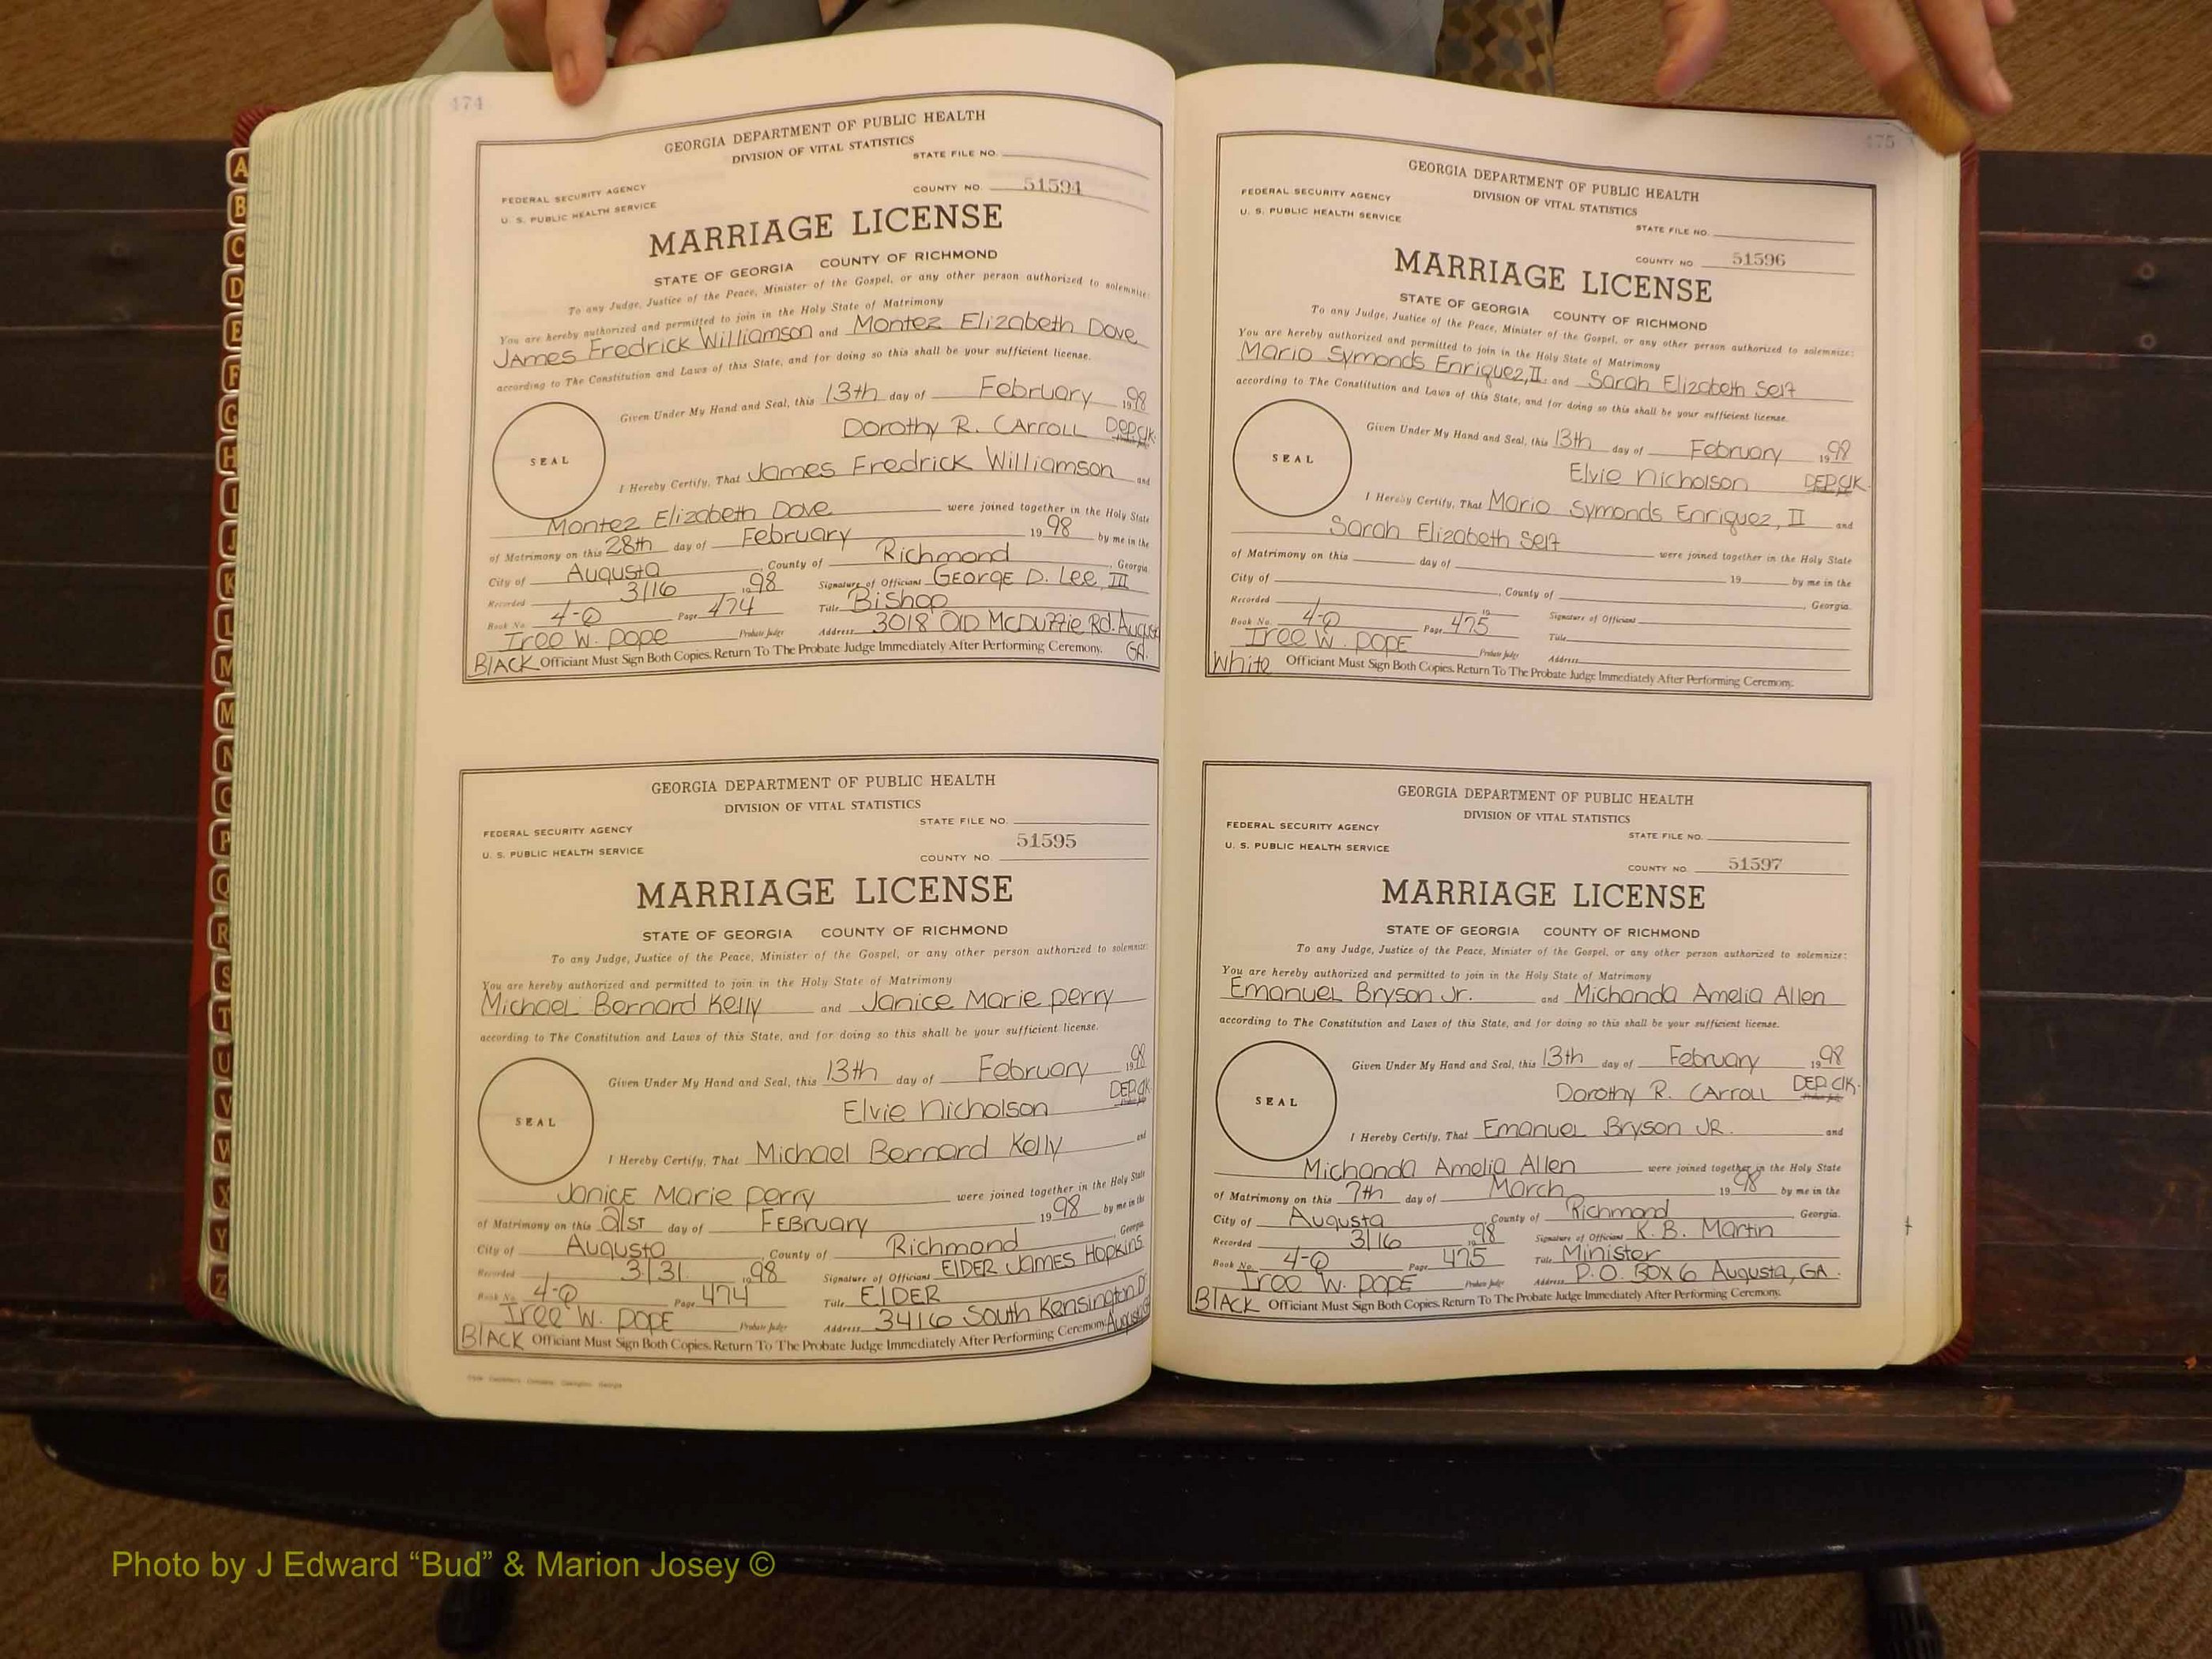 474
GEORGIA DEPARTMENT OF PUBLIC HEALTH
DIVISION OF VITAL STATISTICS
STATE FILE NO.
FEDERAL SECURITY AGENCY
COUNTY NO. 51594
U. S. PUBLIC HEALTH SERVICE
MARRIAGE LICENSE
STATE OF GEORGIA COUNTY OF RICHMOND
To any Judge, Justice of the Peace, Minister of the Gospel, or any other person authorized to solemnize:
You are hereby authorized and permitted to join in the Holy State of Matrimony
James Fredrick Williamson and Montez Elizabeth Dove
according to The Constitution and Laws of this State, and for doing so this shall be your sufficient license.
Given Under My Hand and Seal, this 13th day of February 1998
Dorothy R. Carroll DEP. Clk.
SEAL
I Hereby Certify, That James Fredrick Williamson and
Montez Elizabeth Dove were joined together in the Holy State
of Matrimony on this 28th day of February 1998 by me in the
City of Augusta, County of Richmond, Georgia
Recorded 3/16 1998 Signature of Officiant George D. Lee, III
Book No. 4-Q Page 474 Title Bishop
Iree W. Pope Probate Judge Address 3018 Old McDuffie Rd. August
GA.
BLACK Officiant Must Sign Both Copies. Return To The Probate Judge Immediately After Performing Ceremony.
GEORGIA DEPARTMENT OF PUBLIC HEALTH
DIVISION OF VITAL STATISTICS
STATE FILE NO.
FEDERAL SECURITY AGENCY
51595
U. S. PUBLIC HEALTH SERVICE
COUNTY NO.
MARRIAGE LICENSE
STATE OF GEORGIA COUNTY OF RICHMOND
To any Judge, Justice of the Peace, Minister of the Gospel, or any other person authorized to solemnize:
You are hereby authorized and permitted to join in the Holy State of Matrimony
Michael Bernard Kelly and Janice Marie Perry
according to The Constitution and Laws of this State, and for doing so this shall be your sufficient license.
Given Under My Hand and Seal, this 13th day of February 1998
Elvie Nicholson DEP. Clk.
SEAL
I Hereby Certify, That Michael Bernard Kelly and
Janice Marie Perry were joined together in the Holy State
of Matrimony on this 21st day of February 1998 by me in the
City of Augusta, County of Richmond Georgia
Recorded 3/31 1998 Signature of Officiant Elder James Hopkins
Book No. 4-Q Page 474 Title Elder
Iree W. Pope Probate Judge Address 3416 South Kensington D
BLACK Officiant Must Sign Both Copies. Return To The Probate Judge Immediately After Performing Ceremony.
475
GEORGIA DEPARTMENT OF PUBLIC HEALTH
DIVISION OF VITAL STATISTICS
FEDERAL SECURITY AGENCY
STATE FILE NO.
U. S. PUBLIC HEALTH SERVICE
COUNTY NO 51596
MARRIAGE LICENSE
STATE OF GEORGIA COUNTY OF RICHMOND
To any Judge, Justice of the Peace, Minister of the Gospel, or any other person authorized to solemnize:
You are hereby authorized and permitted to join in the Holy State of Matrimony
Mario Symonds Enriquez, II and Sarah Elizabeth Self
according to The Constitution and Laws of this State, and for doing so this shall be your sufficient license.
Given Under My Hand and Seal, this 13th day of February 1998
Elvie Nicholson DEP. Clk.
SEAL
I Hereby Certify, That Mario Symonds Enriquez, II and
Sarah Elizabeth Self were joined together in the Holy State
of Matrimony on this day of 19 by me in the
City of , County of , Georgia.
Recorded 19 Signature of Officiant
Book No. 4-Q Page 475 Title
Iree W. Pope Probate Judge Address
White Officiant Must Sign Both Copies. Return To The Probate Judge Immediately After Performing Ceremony.
GEORGIA DEPARTMENT OF PUBLIC HEALTH
DIVISION OF VITAL STATISTICS
FEDERAL SECURITY AGENCY
STATE FILE NO.
U. S. PUBLIC HEALTH SERVICE
COUNTY NO. 51597
MARRIAGE LICENSE
STATE OF GEORGIA COUNTY OF RICHMOND
To any Judge, Justice of the Peace, Minister of the Gospel, or any other person authorized to solemnize:
You are hereby authorized and permitted to join in the Holy State of Matrimony
Emanuel Bryson Jr. and Michanda Amelia Allen
according to The Constitution and Laws of this State, and for doing so this shall be your sufficient license.
Given Under My Hand and Seal, this 13th day of February 1998
Dorothy R. Carroll DEP. Clk.
SEAL
I Hereby Certify, That Emanuel Bryson JR. and
Michanda Amelia Allen were joined together in the Holy State
of Matrimony on this 7th day of March 1998 by me in the
City of Augusta, County of Richmond Georgia.
Recorded 3/16 1998 Signature of Officiant K. B. Martin
Book No. 4-Q Page 475 Title Minister
Iree W. Pope Probate Judge Address P.O. Box 6 Augusta, GA.
BLACK Officiant Must Sign Both Copies. Return To The Probate Judge Immediately After Performing Ceremony.
A
B
C
D
E
F
G
H
I
J
K
L
M
M
N
O
P
Q
R
S
T
U
V
W
X
Y
Z
Photo by J Edward “Bud” & Marion Josey ©